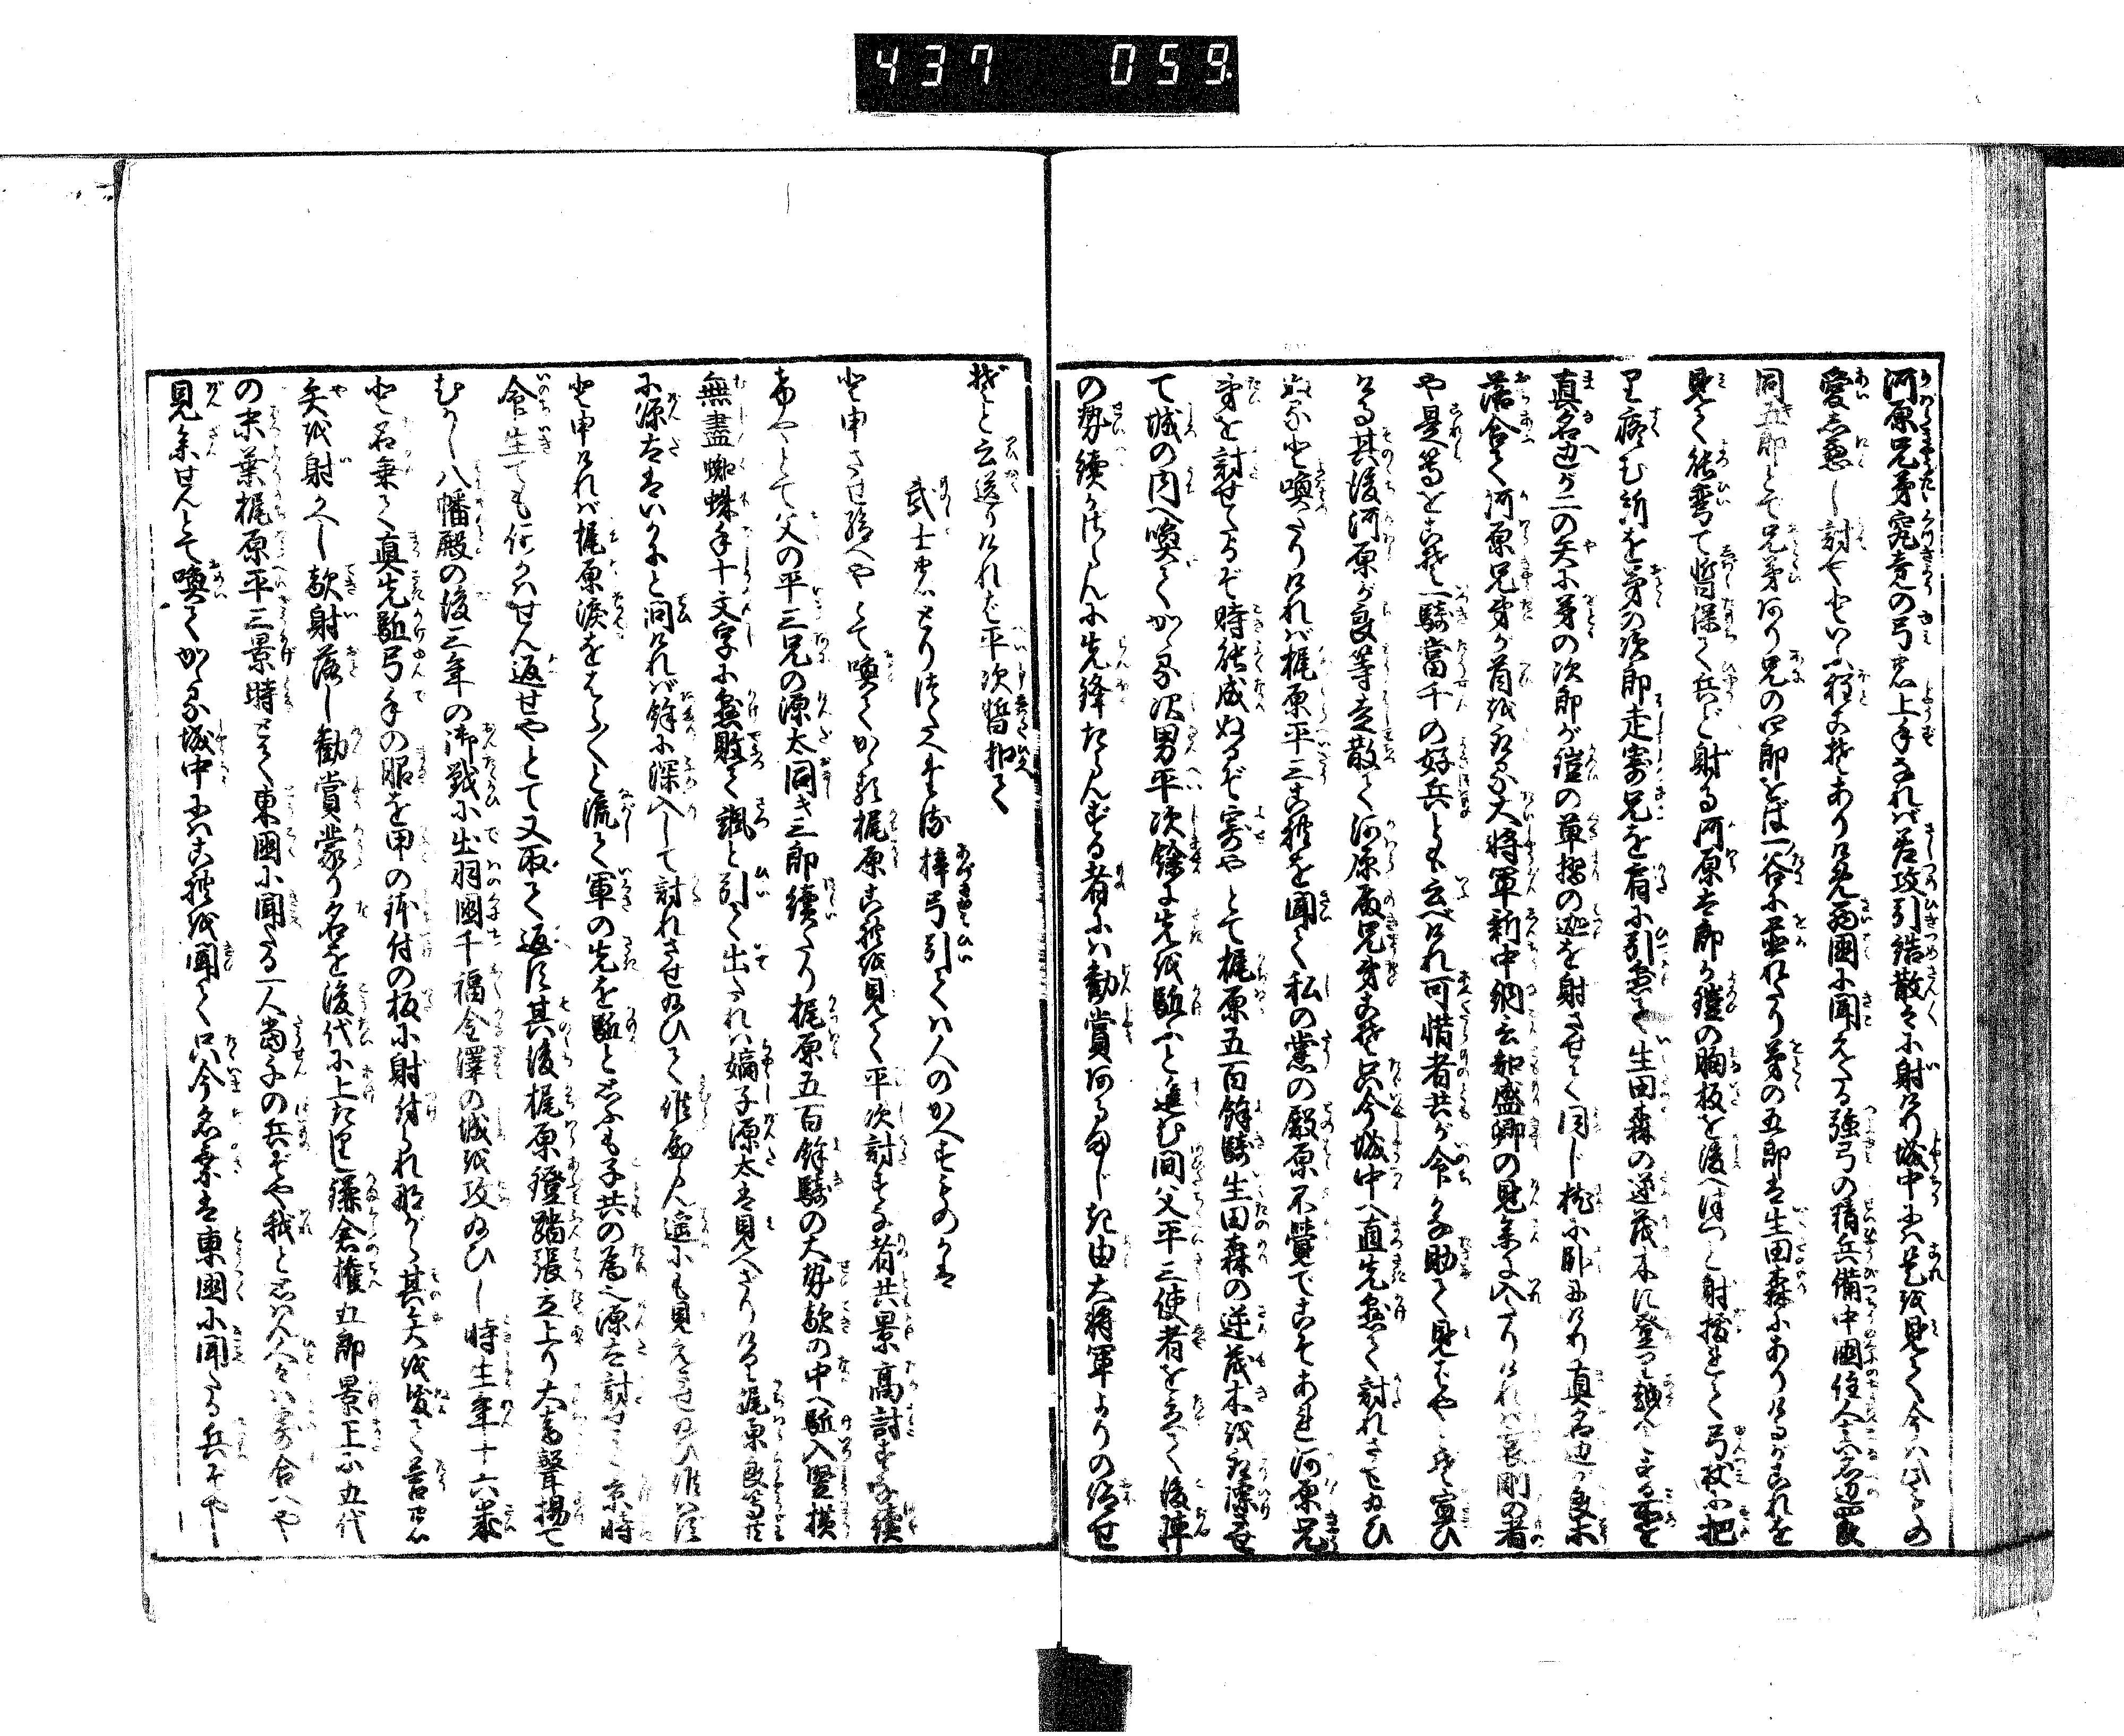 437 059
河原兄弟究竟の弓の上手なれば差攻引結散々に射けり城中にハ是を見て今ハ
愛し悪し討やといふ程こそありけれ西國に聞えたる強弓の精兵備中國住人真名辺四郎
同五郎とて兄弟あり兄の四郎をば一谷に置れたり弟の五郎は生田森にありけるがこれを
見て能彎て暫保て兵ど射る河原太郎が鎧の胸板を後へはつと射抜れて弓杖に把
り痿む所を弟の次郎走寄兄を肩に引懸て生田森の逆茂木に登り越んとする處を
真名辺が二の矢に弟の次郎が鎧の草摺の迦を射させて同じ枕に臥にけり真名辺が郎等
落合て河原兄弟が首を取る大将軍新中納言知盛卿の見参に入たりければ哀剛の者
や是等をこそ一騎當千の好兵とも云べけれ可惜者共が命を助て見ばやとぞ宣ひ
ける其後河原が郎等走散て河原殿兄弟こそ只今城中へ直先懸て討れさせ給ひ
ぬるぞと喚たりければ梶原平三これを聞て私の黨の殿原の不覺でこそあれ河原兄
弟を討せたるぞ時能成ぬるぞ寄やとて梶原五百餘騎生田森の逆茂木を取除させ
て城の内へ喚てかゝる次男平次餘に先を駈んと進む間父平三使者を立て後陣
の勢續かざらんに先縫たらんずる者にハ勸賞あるまじき由大将軍よりの仰せ
ぞと云送りければ平次暫扣て
武士のとりつたへたる梓弓引てハ人のかへすものかは
と申させ給へやとて喚てかゝる梶原これを見て平次討すな者共景高討すな續
けやとて父の平三兄の源太同き三郎續たり梶原五百餘騎の大勢敵の中へ駈入竪横
無盡蜘蛛手十文字に懸敗て颯と引て出たれハ嫡子源太は見へざりけり梶原郎等共
に源太はいかにと問ければ餘に深入して討れさせ給ひて候やらん遥にも見えさせ給ひ候はず
と申ければ梶原涙をはらゝと流て軍の先を駈と思ふも子共の為也源太討せて景時
命生ても何かハせん返せやとて又取て返す其後梶原鐙踏張立上り大音聲揚て
むかし八幡殿の後三年の御戰に出羽國千福金澤の城を攻給ひし時生年十六歳
と名乗て真先駈弓手の眼を甲の鉢付の板に射付られながら其矢を抜て當の
矢を射かへし敵射落し勸賞蒙り名を後代に上たりし鎌倉権五郎景正に五代
の末葉梶原平三景時とて東國に聞たる一人當千の兵ぞや我と思ハん人々ハ寄合へや
見参せんとて喚てかゝる城中にハこれを聞て只今名乗は東國に聞たる兵ぞや